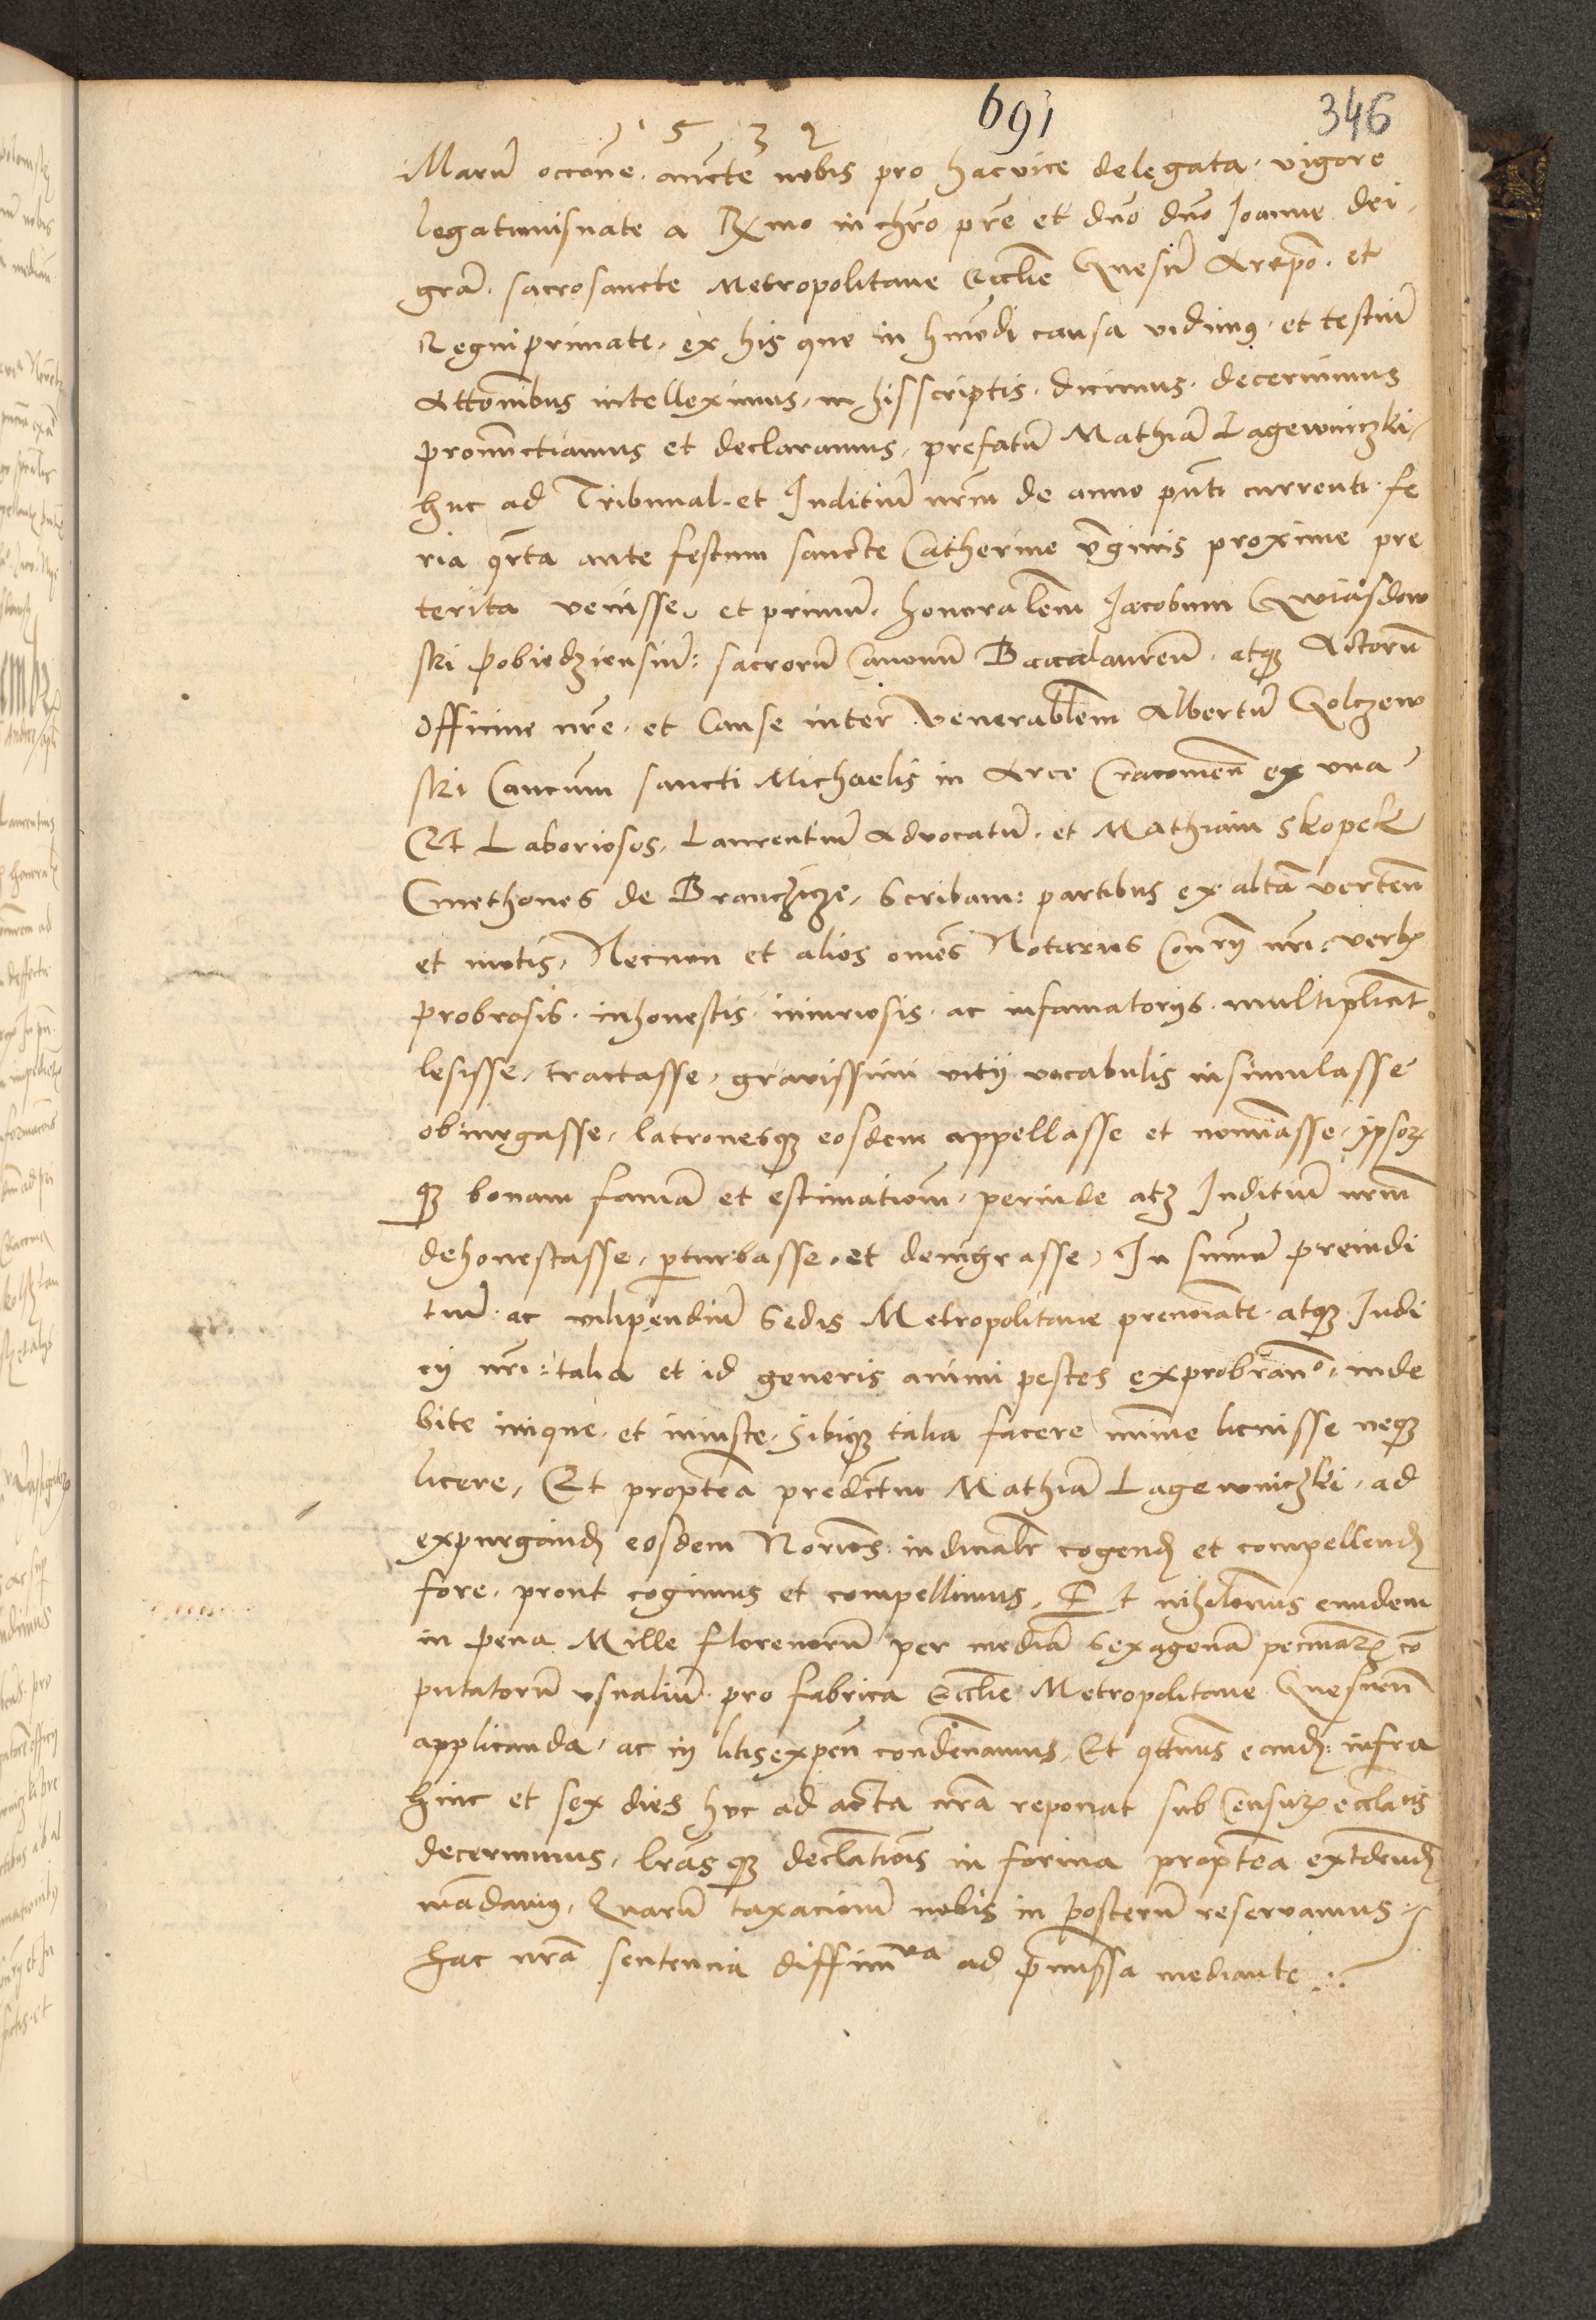 691 346
1532
Marum occone. aucte nobis pro hac vice delegata. vigore
legationisnate a Rxmo in chro pre et dno dno Joanne dei
gra. sacrosancte Metropolitane Ecclie Gnesneñ Arepo. et
Regni primate, ex his que in hmodi causa vidimus. et testium
Attonibus intelleximus, in his scriptis. dicimus. decernimus
pronunctiamus et declaramus, prefatum Mathiam Lagewniczki,
huc ad Tribunal. et Juditium nrm de anno pnti currenti. fe
ria qrta ante festum sancte Catherine vginis proxime pre
terita venisse, et primum. honorablem Jacobum Gwiasdow
ski Pobiedziensium: sacrorum Canonum Baccalaureum. atque Actorum
officine nre. et Cause inter Venerablem Albertum Golczew
ski Cancum sancti Michaelis in Arce Cracovien ex una
Et Laboriosos, Laurentium Advocatum. et Mathiam Skopek
Cmethones de Branczicze, Scribam: partibus ex altã verten
et motis, Necnon et alios omes Notarios Conrij nri: verbis
probrosis. inhonestis iniuriosis. ac infamatorijs. multiplicit
lesisse, tractasse, gravissimi vitij vocabulis insimulasse
obiurgasse, latronesque eosdem appellasse et nominasse, ipsorum
que bonam famam et estimationem, perinde atque Juditium nrm
dehonestasse, pturbasse. et denigrasse, In summum preiudi
tium ac vilipendium Sedis Metropolitane prenominate. atque Judi
cij nri: talia et id generis animi pestes exprobrando. inde
bite inique. et iniuste. sibique talia facere minime licuisse neque
licere, Et proptea predctum Mathiam Lagewniczki, ad
expurgand eosdem Norios: iudicialr cogend et compellend
fore. prout cogimus et compellimus, Et nihilominus eundem
in pena Mille florenorum per mediam Sexagenam pecuniarum co
putatorum usualium. pro fabrica Ecclie Metropolitane Gnesnen
applicanda, ac in litisexpen condemnamus, Et qttnus eand: infra
hinc et sex dies huc ad acta nra reponat sub Censuris ecclaticis
decernimus, lras que declationis in forma proptea extdend
mandamus, Quarum taxacionem nobis in posterum reservamus:
hac nra sentencia diffinitiva ad pmissa mediante.:.